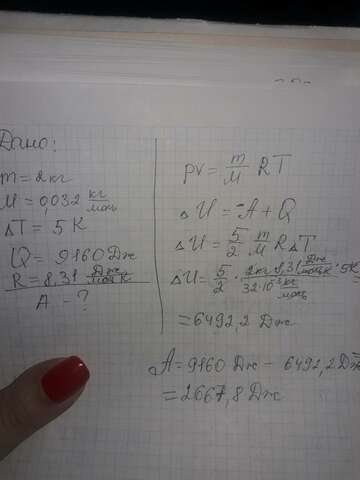 Дано:
m = 2 кг
M = 0,032 кг/моль
ΔT = 5 K
Q = 9160 Дж
R = 8,31 Дж/моль K
A - ?
pv = m/M RT
ΔU = -A + Q
ΔU = 5/2 m/M RΔT
ΔU = 5/2 · 2кг/32·10⁻³ кг/моль · 8,31 Дж/моль·K · 5K =
= 6492,2 Дж
A = 9160 Дж - 6492,2 Дж =
= 2667,8 Дж